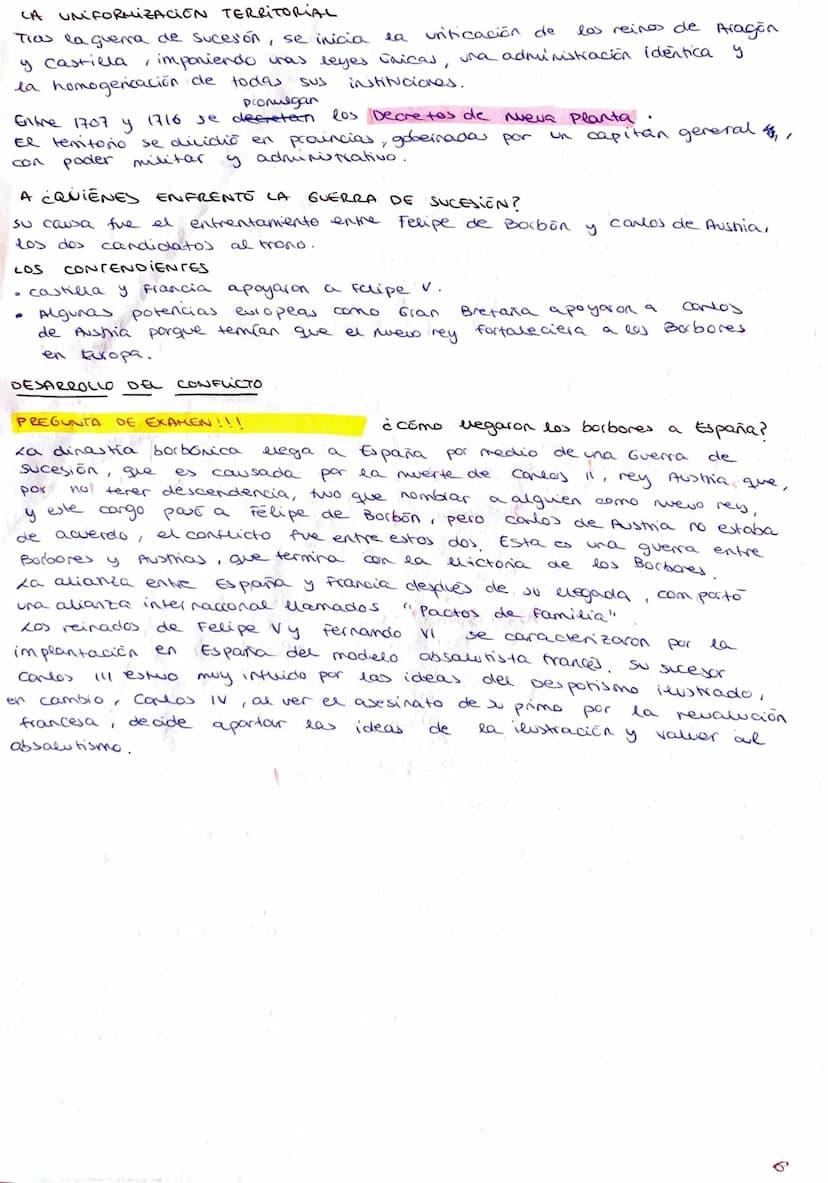 LA UNIFORMIZACIÓN TERRITORIAL
Tras la guerra de sucesón, se inicia la unificación de los reinos de Aragón
y Castilla, imponiendo unas leyes únicas, una administración idéntica y
la homogenicación de todas sus instituciones.
promulgan
Entre 1707 y 1716 se decretan los Decretos de Nueva Planta.
El territorio se dividió en provincias, gobernadas por un capitán general,
con poder militar y administrativo.
A ¿QUIÉNES ENFRENTÓ LA GUERRA DE SUCESIÓN?
Su causa fue el enfrentamiento entre Felipe de Borbón y Carlos de Austria,
los dos candidatos al trono.
LOS CONTENDIENTES
• Castilla y Francia apoyaron a Felipe V.
• Algunas potencias europeas como Gran Bretaña apoyaron a Carlos
de Austria porque temían que el nuevo rey fortaleciera a los Borbones
en Europa.
DESARROLLO DEL CONFLICTO
PREGUNTA DE EXAMEN!!! ¿Cómo llegaron los borbones a España?
La dinastía borbónica llega a España por medio de una Guerra de
sucesión, que es causada por la muerte de Carlos II, rey Austria que,
por no tener descendencia, tuvo que nombrar a alguien como nuevo rey,
y este cargo pasó a Felipe de Borbón, pero Carlos de Austria no estaba
de acuerdo, el conflicto fue entre estos dos. Esta es una guerra entre
Borbones y Austrias, que termina con la victoria de los Borbones.
La alianza entre España y Francia después de su llegada, comportó
una alianza internacional llamados "Pactos de Familia"
Los reinados de Felipe V y Fernando VI se caracterizaron por la
implantación en España del modelo absolutista francés. Su sucesor
Carlos III estuvo muy influido por las ideas del Despotismo ilustrado,
en cambio, Carlos IV, al ver el asesinato de su primo por la revolución
francesa, decide apartar las ideas de la ilustración y volver al
absolutismo.